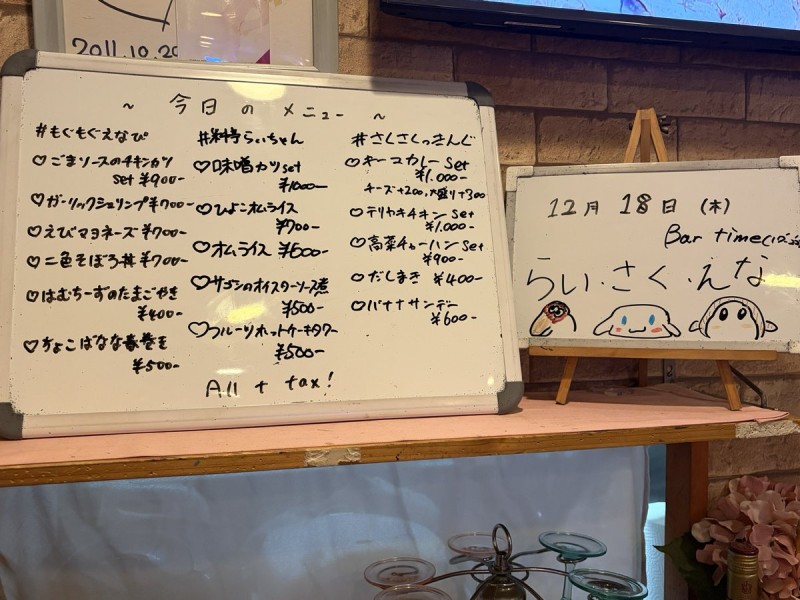 2011.10.20
~ 今日のメニュー ~
#もぐもぐえなぴ
♡ごまソースのチキンカツ
set ¥900-
♡ガーリックシュリンプ¥700-
♡えびマヨネーズ¥700-
♡二色そぼろ丼¥700-
♡はむちーずのたまごやき
¥400-
♡ちょこばなな春巻き
¥500-
#料亭らぃちゃん
♡味噌カツset
¥1000-
♡ひよこオムライス
¥700-
♡オムライス ¥600-
♡サゴシのオイスターソース煮
¥500-
♡フルーツホットケーキタワー
¥500-
#さくさくっきんぐ
♡キーマカレーset
¥1.000-
チーズ+200,大盛り+300
♡テリヤキチキンset
¥1.000-
♡高菜チャーハンset
¥900-
♡だしまき ¥400-
♡バナナサンデー
¥600-
All + tax!
12月 18日 (木)
Bar time
らい.さく.えな